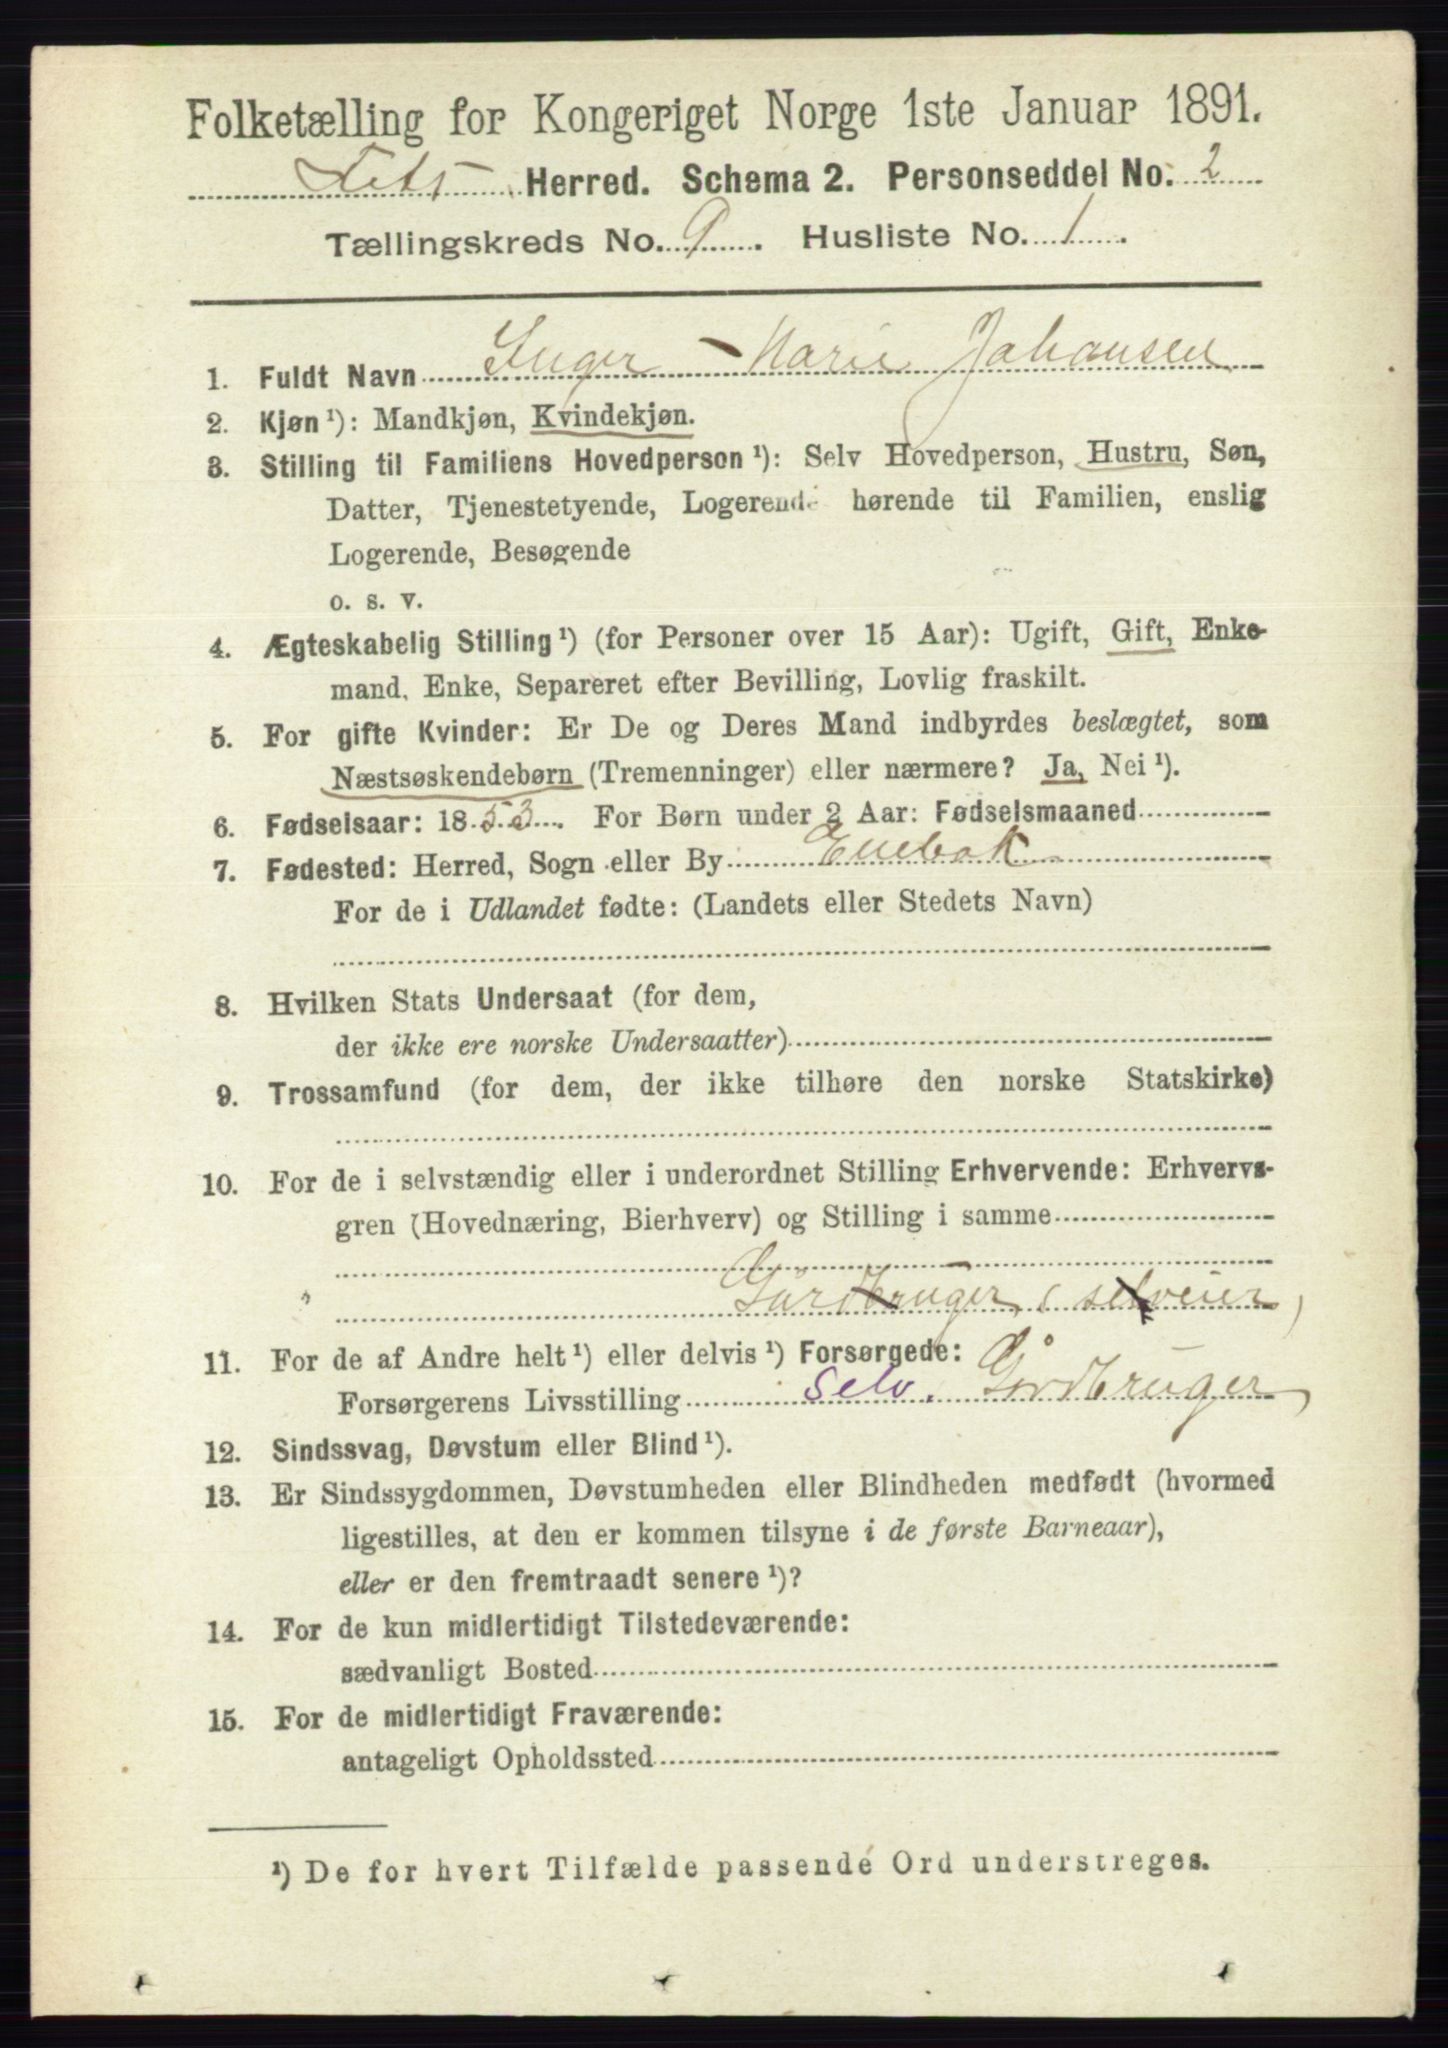 Folketælling for Kongeriget Norge 1ste Januar 1891.
Fets Herred. Schema 2. Personseddel No. 2
Tællingskreds No. 9. Husliste No. 1.
1. Fuldt Navn Inger Marie Johansen
2. Kjøn ¹): Mandkjøn, Kvindekjøn.
3. Stilling til Familiens Hovedperson ¹): Selv Hovedperson, Hustru, Søn,
Datter, Tjenestetyende, Logerende hørende til Familien, enslig
Logerende, Besøgende
o. s. v.
4. Ægteskabelig Stilling ¹) (for Personer over 15 Aar): Ugift, Gift, Enke-
mand, Enke, Separeret efter Bevilling, Lovlig fraskilt.
5. For gifte Kvinder: Er De og Deres Mand indbyrdes beslægtet, som
Næstsøskendebørn (Tremenninger) eller nærmere? Ja, Nei ¹).
6. Fødselsaar: 1853. For Børn under 2 Aar: Fødselsmaaned
7. Fødested: Herred, Sogn eller By Enebak
For de i Udlandet fødte: (Landets eller Stedets Navn)
8. Hvilken Stats Undersaat (for dem,
der ikke ere norske Undersaatter)
9. Trossamfund (for dem, der ikke tilhøre den norske Statskirke)
10. For de i selvstændig eller i underordnet Stilling Erhvervende: Erhvervs-
gren (Hovednæring, Bierhverv) og Stilling i samme
Gårdbruger, selveier,
11. For de af Andre helt ¹) eller delvis ¹) Forsørgede:
Forsørgerens Livsstilling Selv. Gårdbruger
12. Sindssvag, Døvstum eller Blind ¹).
13. Er Sindssygdommen, Døvstumheden eller Blindheden medfødt (hvormed
ligestilles, at den er kommen tilsyne i de første Barneaar),
eller er den fremtraadt senere ¹)?
14. For de kun midlertidigt Tilstedeværende:
sædvanligt Bosted
15. For de midlertidigt Fraværende:
antageligt Opholdssted
¹) De for hvert Tilfælde passende Ord understreges.